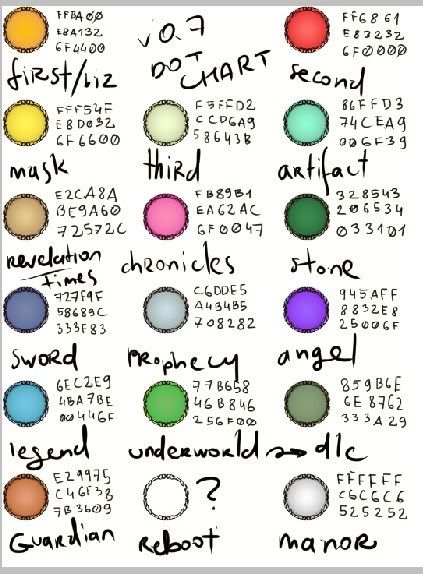 FFBA00
E8A132
6F4400
first/biz
v0.7
DOT CHART
FF6861
E83232
6F0000
second
FFF54F
E8D032
6F6600
mask
F5FFD2
CCD6A9
58643B
third
86FFD3
74CEA9
006F39
artifact
E2CA8A
BE9A60
72572C
revelation
times
FB89B1
EA62AC
6F0047
chronicles
328543
206534
033101
stone
727F9F
58689C
333F83
sword
C6DDE5
A434B5
708282
Prophecy
945AFF
8832E8
25006F
angel
6EC2E9
4BA7BE
00446F
legend
77B658
46B846
256F00
underworld → dlc
859B6E
6E8762
333A29
E29975
C46F38
7B3609
Guardian
?
Reboot
FFFFFF
C6C6C6
525252
manor